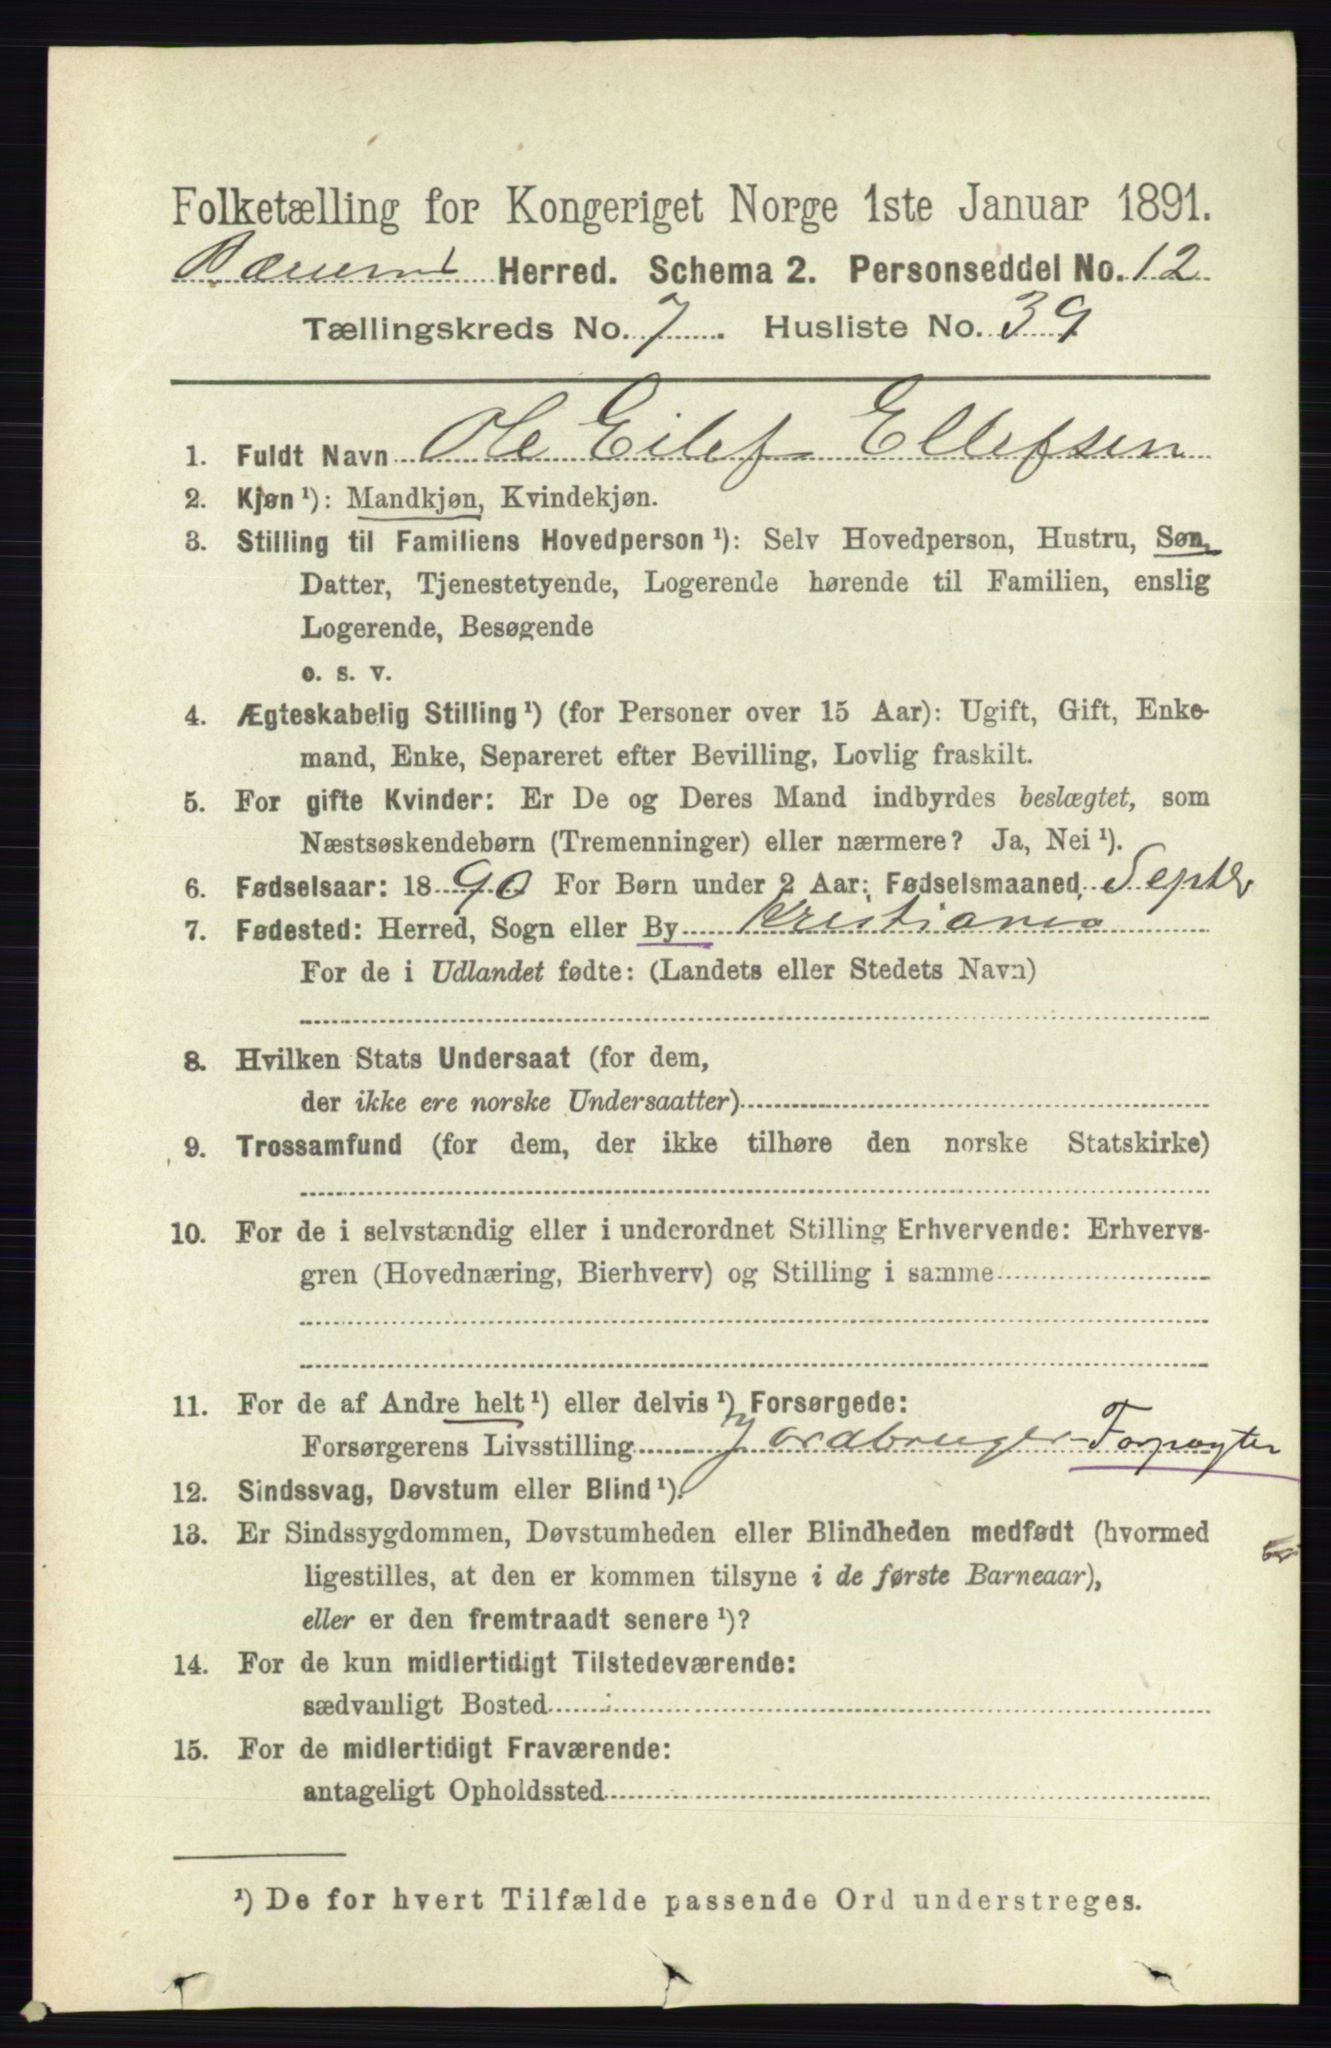 Folketælling for Kongeriget Norge 1ste Januar 1891.
Bærums Herred. Schema 2. Personseddel No. 12
Tællingskreds No. 7. Husliste No. 39
1. Fuldt Navn Ole Eilef Ellefsen
2. Kjøn ¹): Mandkjøn, Kvindekjøn.
3. Stilling til Familiens Hovedperson ¹): Selv Hovedperson, Hustru, Søn,
Datter, Tjenestetyende, Logerende hørende til Familien, enslig
Logerende, Besøgende
o. s. v.
4. Ægteskabelig Stilling ¹) (for Personer over 15 Aar): Ugift, Gift, Enke-
mand, Enke, Separeret efter Bevilling, Lovlig fraskilt.
5. For gifte Kvinder: Er De og Deres Mand indbyrdes beslægtet, som
Næstsøskendebørn (Tremenninger) eller nærmere? Ja, Nei ¹).
6. Fødselsaar: 1890 For Børn under 2 Aar: Fødselsmaaned Septbr
7. Fødested: Herred, Sogn eller By Kristiania
For de i Udlandet fødte: (Landets eller Stedets Navn)
8. Hvilken Stats Undersaat (for dem,
der ikke ere norske Undersaatter)
9. Trossamfund (for dem, der ikke tilhøre den norske Statskirke)
10. For de i selvstændig eller i underordnet Stilling Erhvervende: Erhvervs-
gren (Hovednæring, Bierhverv) og Stilling i samme
11. For de af Andre helt ¹) eller delvis ¹) Forsørgede:
Forsørgerens Livsstilling Jordbruger-Forpagter
12. Sindssvag, Døvstum eller Blind ¹).
13. Er Sindssygdommen, Døvstumheden eller Blindheden medfødt (hvormed
ligestilles, at den er kommen tilsyne i de første Barneaar),
eller er den fremtraadt senere ¹)?
14. For de kun midlertidigt Tilstedeværende:
sædvanligt Bosted
15. For de midlertidigt Fraværende:
antageligt Opholdssted
¹) De for hvert Tilfælde passende Ord understreges.